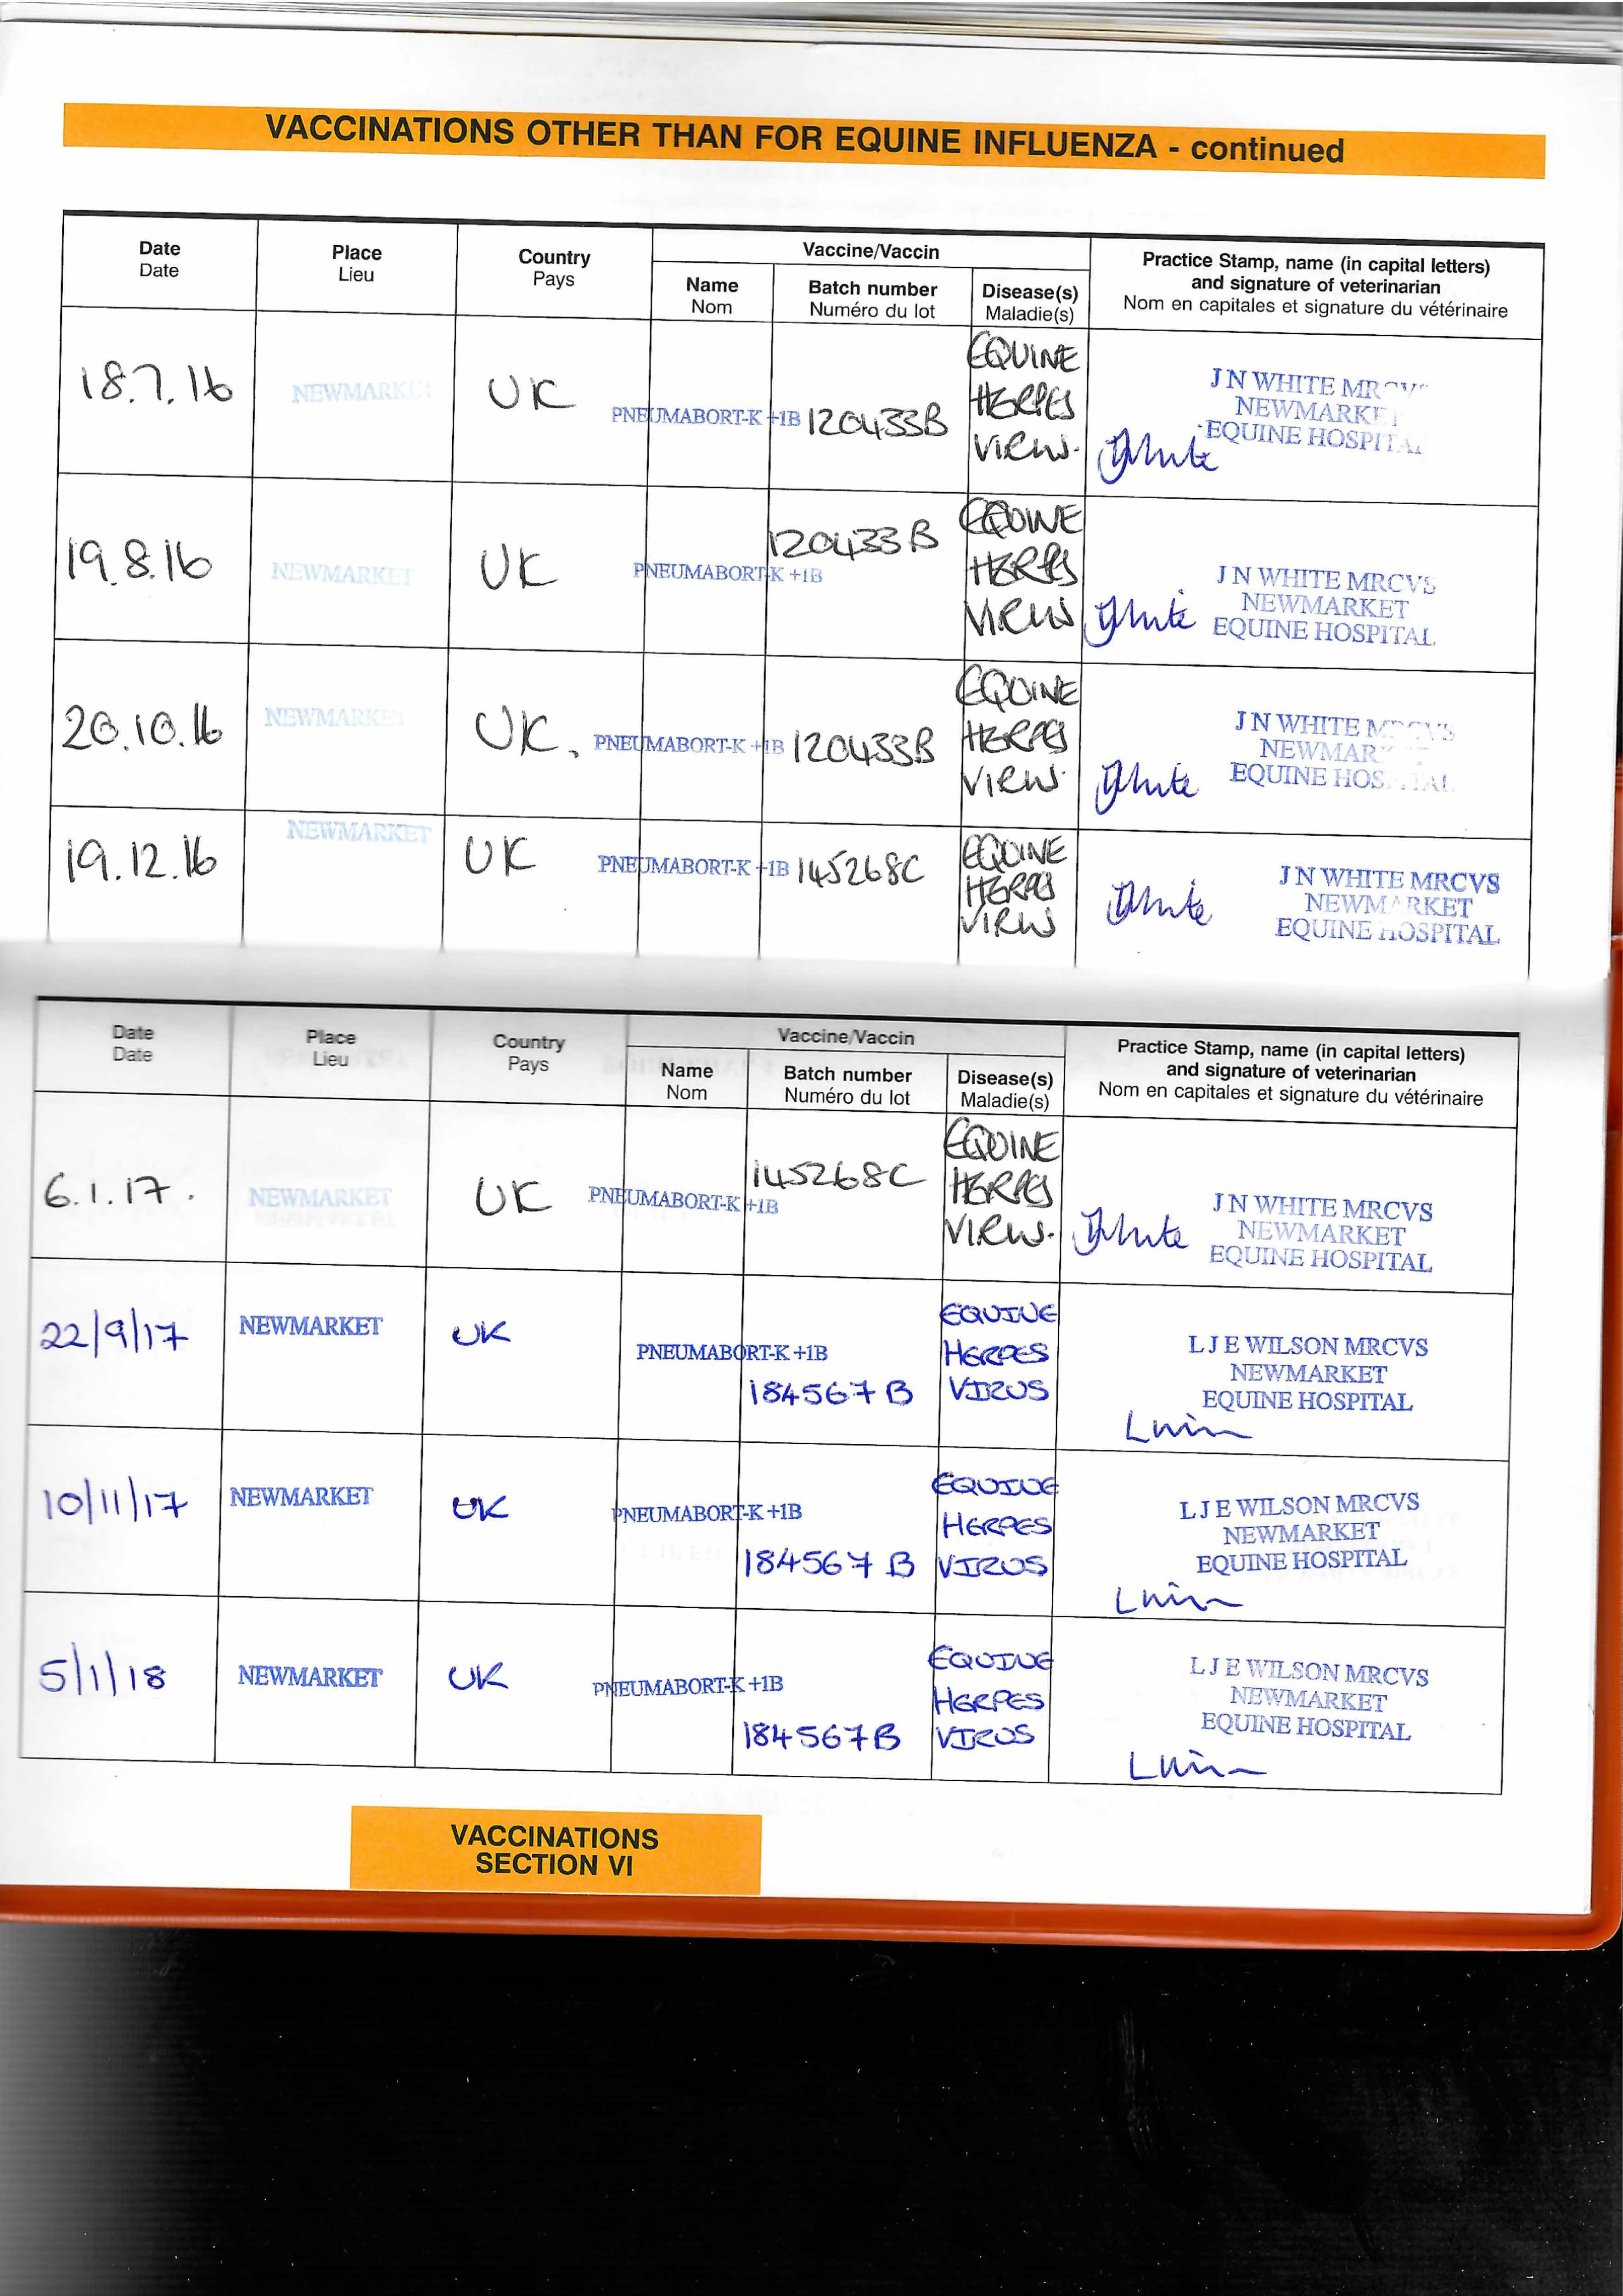 VACCINATIONS OTHER THAN FOR EQUINE INFLUENZA - continued
Date Place Country Vaccine/Vaccin Practice Stamp, name (in capital letters)
Date Lieu Pays Name Batch number Disease(s) and signature of veterinarian
Nom Numéro du lot Maladie(s) Nom en capitales et signature du vétérinaire
EQUINE
18.7.16 NEWMARKET UK PNEUMABORT-K +1B 120433B HERPES J N WHITE MRCVS
VIRUS. NEWMARKET
White EQUINE HOSPITAL
120433B EQUINE
19.8.16 NEWMARKET UK PNEUMABORT-K +1B HERPES J N WHITE MRCVS
VIRUS White NEWMARKET
EQUINE HOSPITAL
EQUINE
20.10.16 NEWMARKET UK. PNEUMABORT-K +1B 120433B HERPES J N WHITE MRCVS
VIRUS. NEWMARKET
White EQUINE HOSPITAL
NEWMARKET EQUINE
19.12.16 UK PNEUMABORT-K +1B 145268C HERPES J N WHITE MRCVS
VIRUS White NEWMARKET
EQUINE HOSPITAL
Date Place Country Vaccine/Vaccin Practice Stamp, name (in capital letters)
Date Lieu Pays Name Batch number Disease(s) and signature of veterinarian
Nom Numéro du lot Maladie(s) Nom en capitales et signature du vétérinaire
145268C EQUINE
6.1.17. NEWMARKET UK PNEUMABORT-K +1B HERPES J N WHITE MRCVS
VIRUS. White NEWMARKET
EQUINE HOSPITAL
EQUINE
22/9/17 NEWMARKET UK PNEUMABORT-K +1B HERPES L J E WILSON MRCVS
184567B VIRUS NEWMARKET
EQUINE HOSPITAL
EQUINE
10/11/17 NEWMARKET UK PNEUMABORT-K +1B HERPES L J E WILSON MRCVS
184567B VIRUS NEWMARKET
EQUINE HOSPITAL
EQUINE
5/1/18 NEWMARKET UK PNEUMABORT-K +1B HERPES L J E WILSON MRCVS
184567B VIRUS NEWMARKET
EQUINE HOSPITAL
VACCINATIONS
SECTION VI